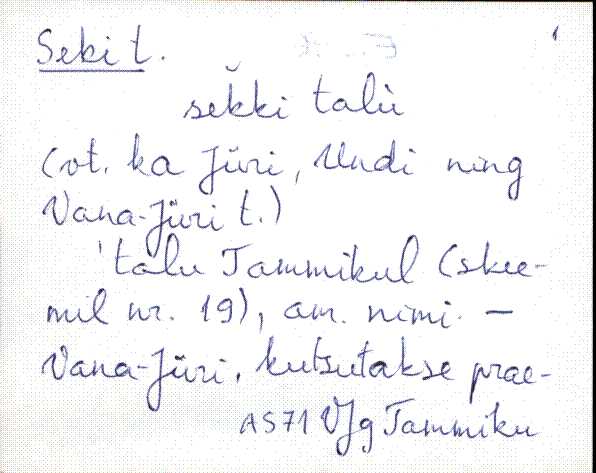 Seki t.
sek̆ki talù
(vt. ka Jüri, Undi ning
Vana-Jüri t.)
'talu Tammikul (skee-
mil nr. 19), am. nimi. —
Vana-Jüri, kutsutakse prae-
AS71 VJg Tammiku